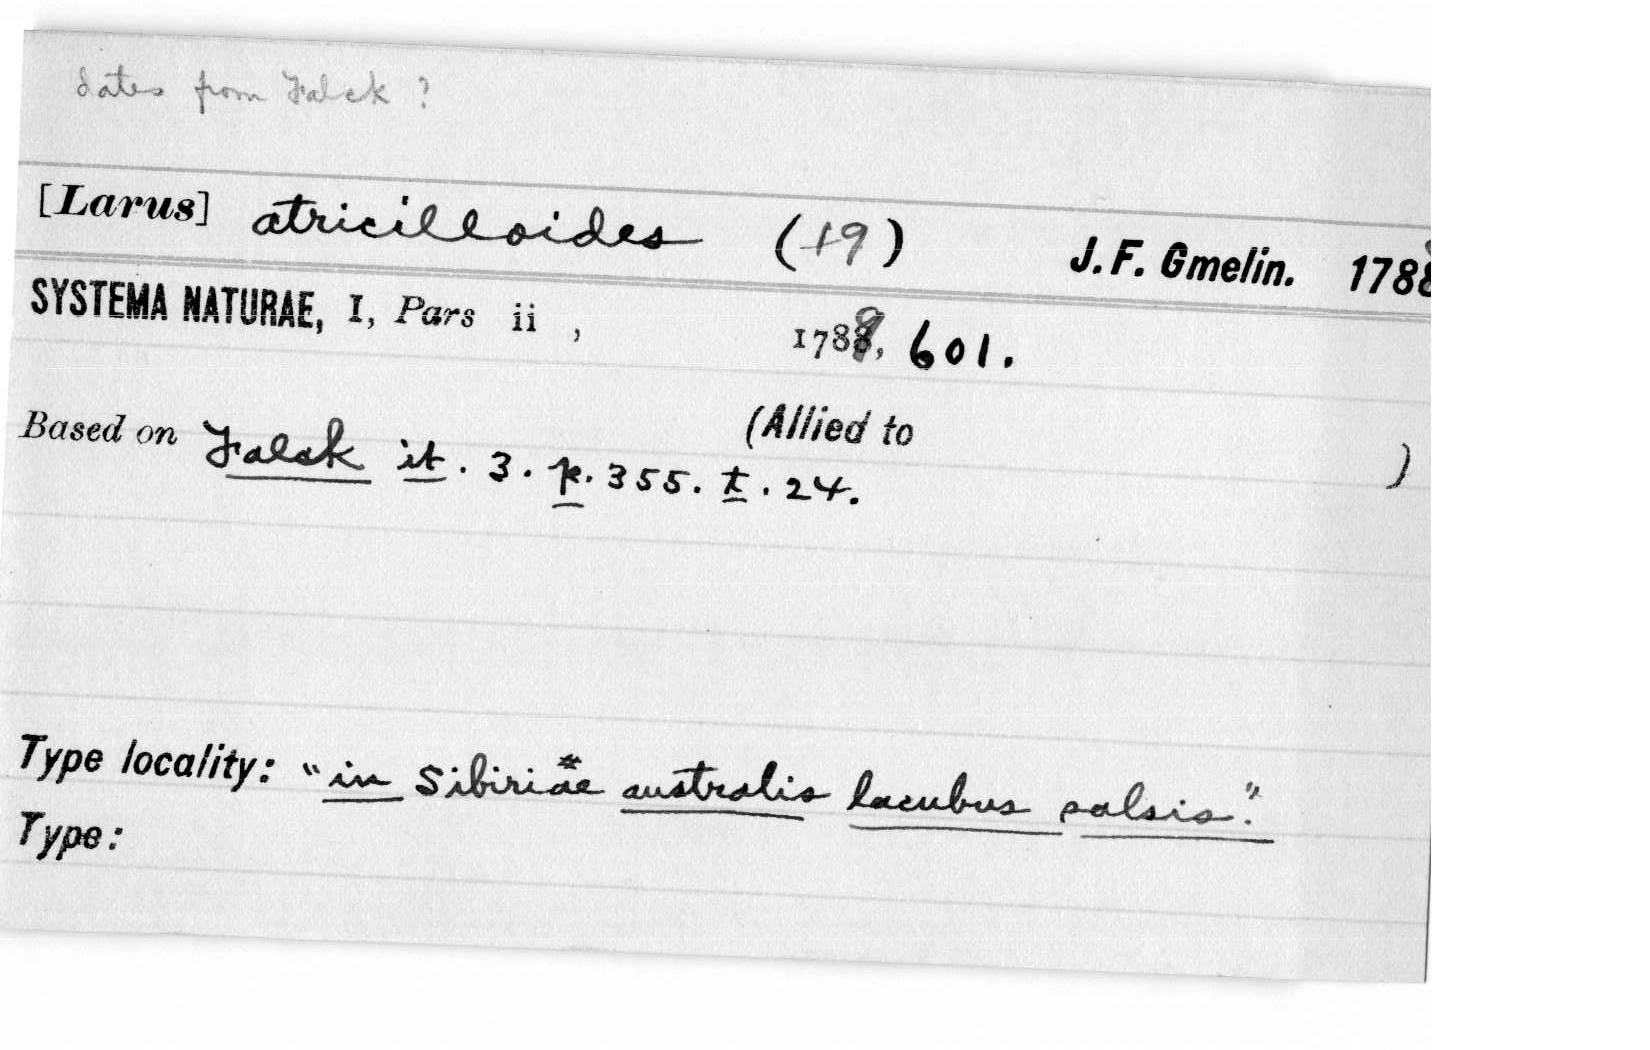 dates from Falck ?
[Larus] atricilloides (19) J. F. Gmelin. 1788
SYSTEMA NATURAE, I, Pars ii , 1789, 601.
Based on Falck it. 3. p. 355. t. 24. (Allied to )
Type locality: "in Sibiriae australis lacubus salsis."
Type: